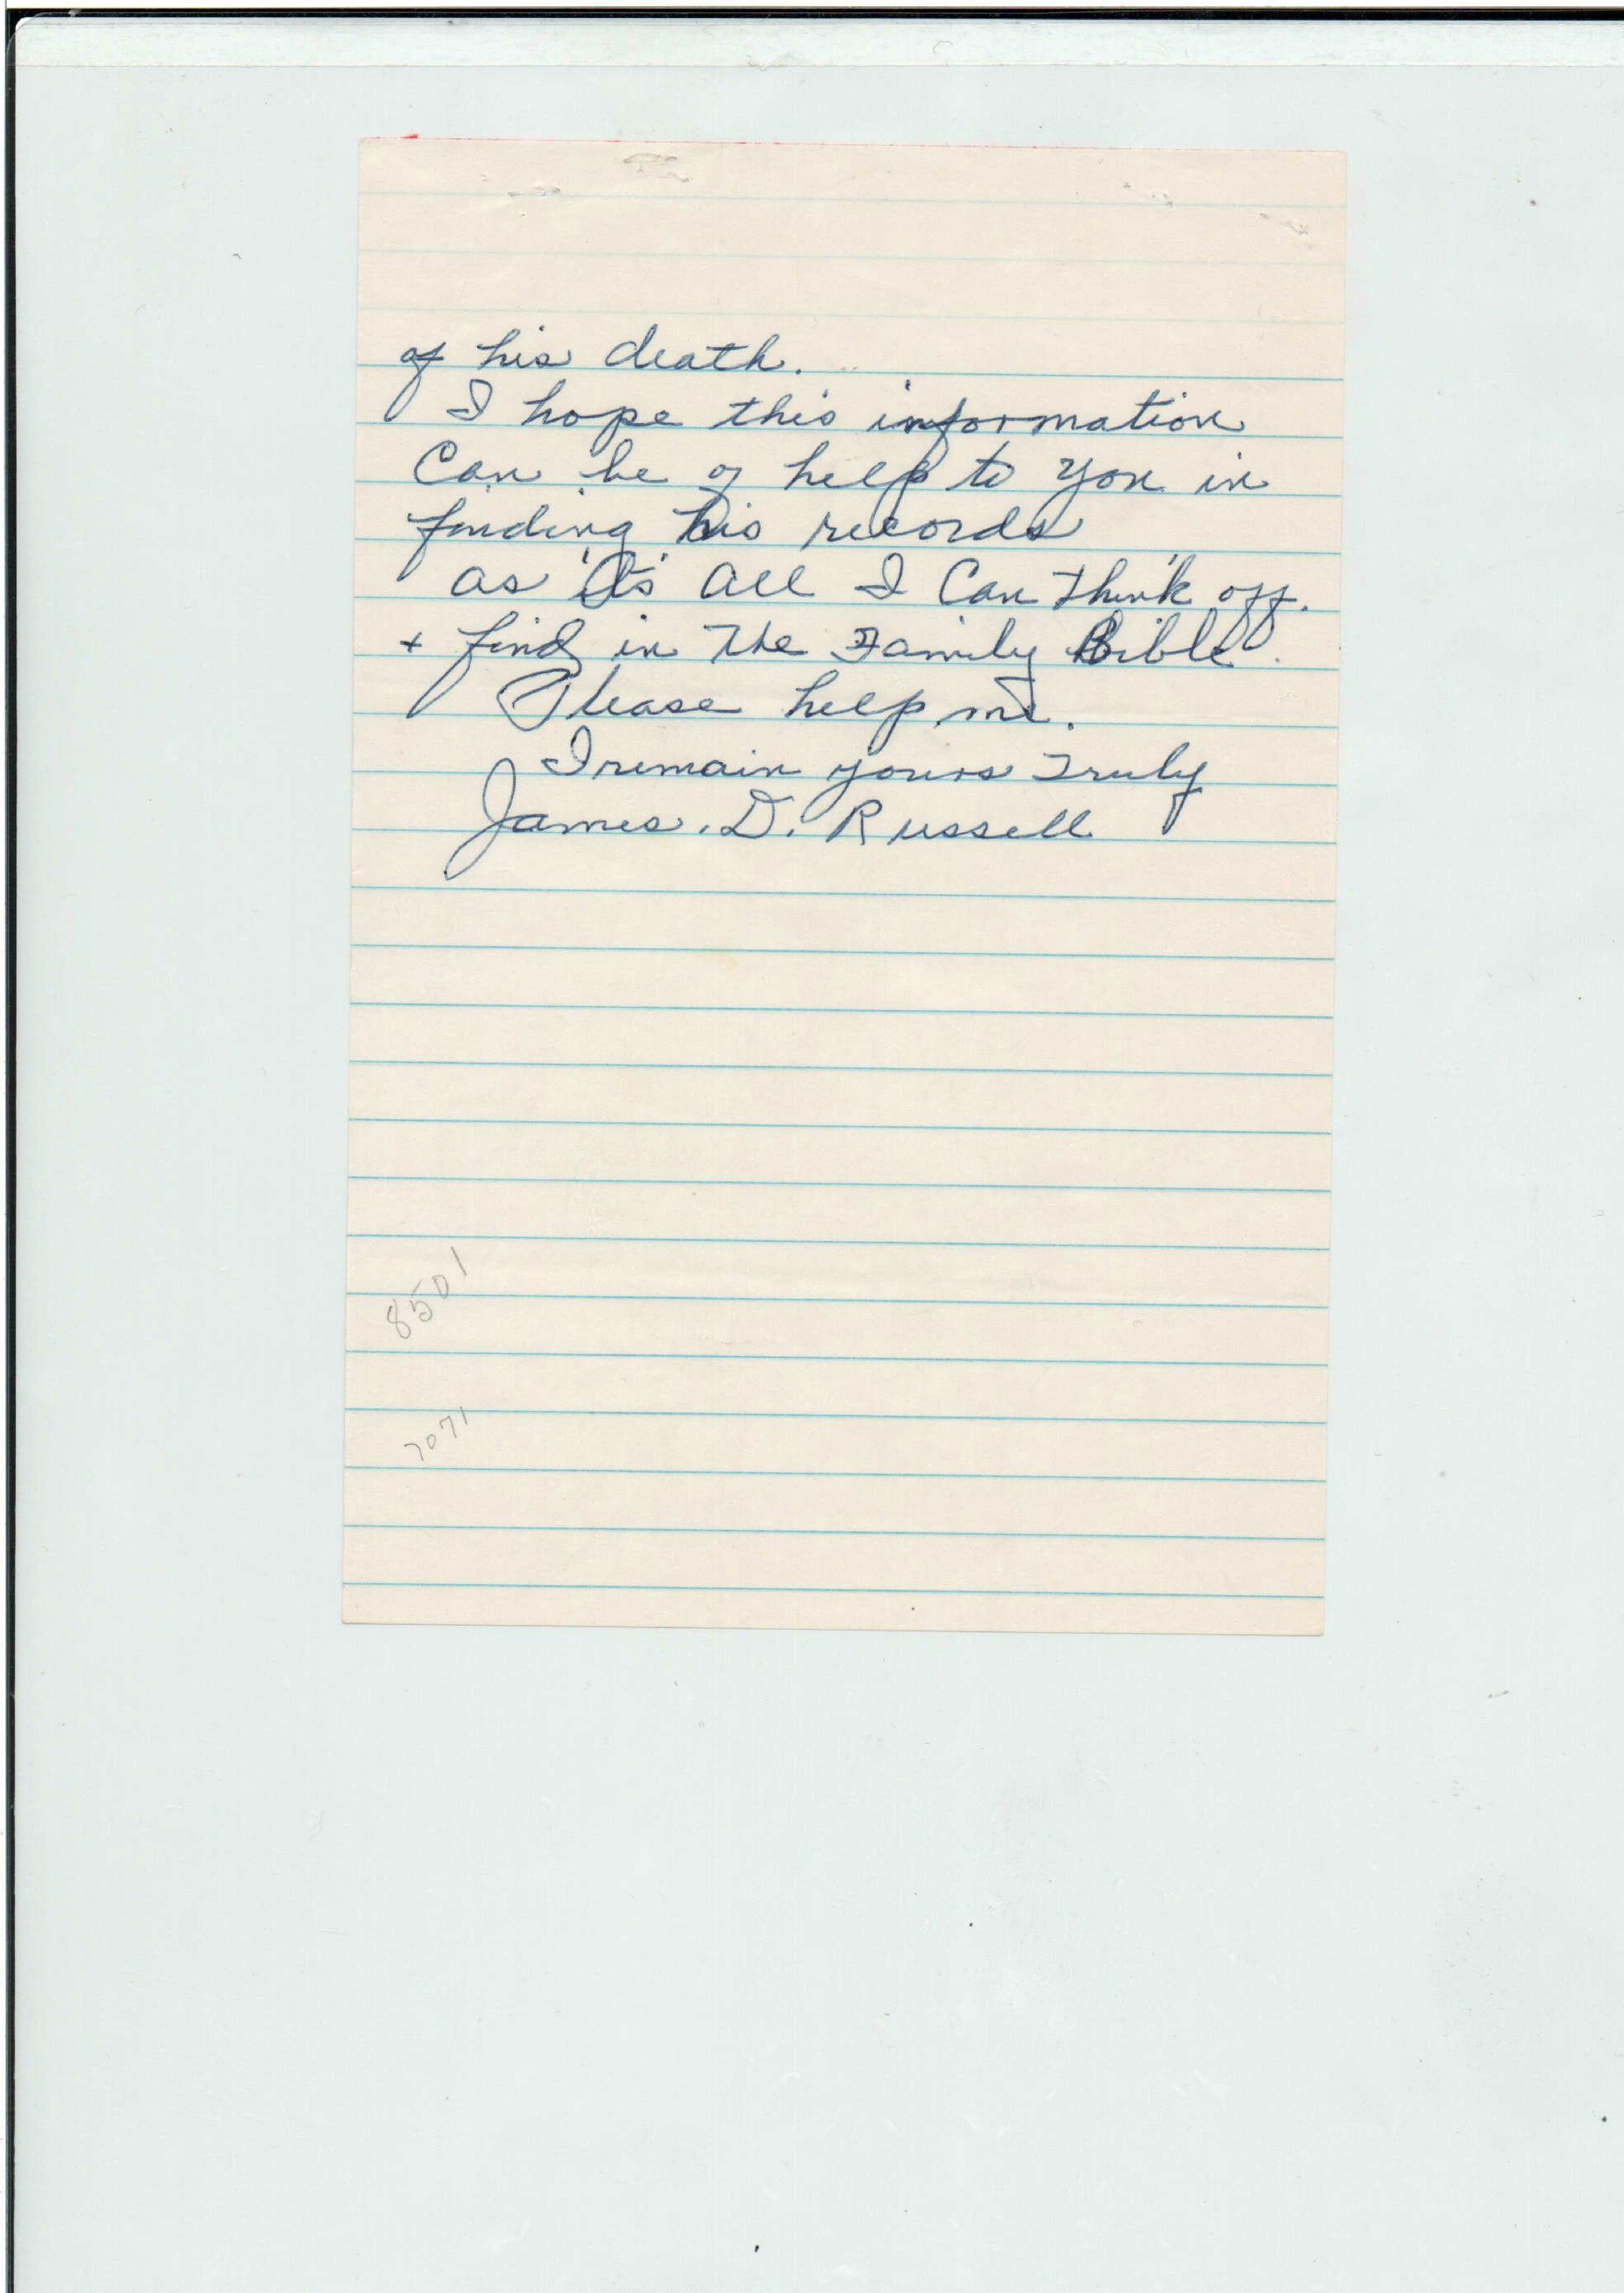 of his death.
I hope this information
Can be of help to you in
finding his records
as it's all I Can think off.
+ find in the Family Bible.
Please help me.
I remain yours Truly
James. D. Russell
8501
7071